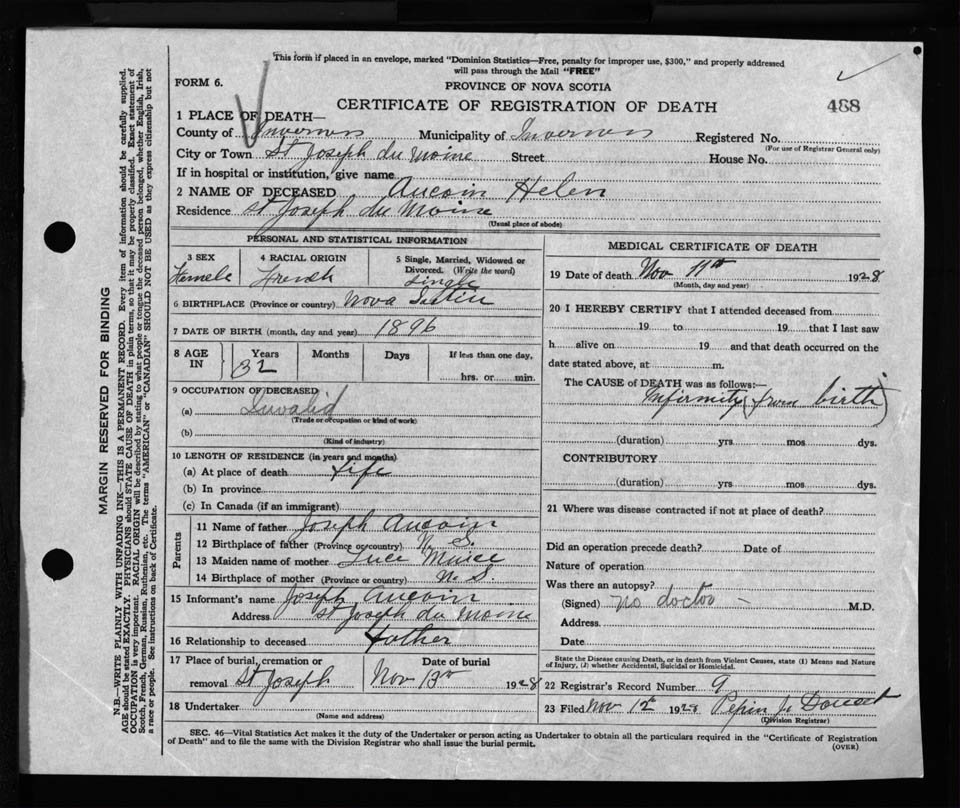 This form if placed in an envelope, marked "Dominion Statistics—Free, penalty for improper use, $300," and properly addressed
will pass through the Mail "FREE"
FORM 6.
PROVINCE OF NOVA SCOTIA
CERTIFICATE OF REGISTRATION OF DEATH
488
1 PLACE OF DEATH—
County of Inverness Municipality of Inverness Registered No.
(For use of Registrar General only)
City or Town St Joseph du Moine Street House No.
If in hospital or institution, give name
2 NAME OF DECEASED Aucoin Helen
Residence St Joseph du Moine
(Usual place of abode)
PERSONAL AND STATISTICAL INFORMATION
3 SEX Female
4 RACIAL ORIGIN French
5 Single, Married, Widowed or
Divorced. (Write the word)
Single
6 BIRTHPLACE (Province or country) Nova Scotia
7 DATE OF BIRTH (month, day and year) 1896
8 AGE IN
Years 32
Months
Days
If less than one day,
hrs. or min.
9 OCCUPATION OF DECEASED
(a) Invalid
(Trade or occupation or kind of work)
(b)
(Kind of industry)
10 LENGTH OF RESIDENCE (in years and months)
(a) At place of death Life
(b) In province
(c) In Canada (if an immigrant)
Parents
11 Name of father Joseph Aucoin
12 Birthplace of father (Province or country) N. S.
13 Maiden name of mother Luce
14 Birthplace of mother (Province or country) N. S.
15 Informant's name Joseph Aucoin
Address St Joseph du Moine
16 Relationship to deceased Father
17 Place of burial, cremation or
removal St Joseph
Date of burial
Nov 13th 1928
18 Undertaker
(Name and address)
MEDICAL CERTIFICATE OF DEATH
19 Date of death Nov 11th 1928
(Month, day and year)
20 I HEREBY CERTIFY that I attended deceased from
19 to 19 that I last saw
h alive on 19 and that death occurred on the
date stated above, at m.
The CAUSE of DEATH was as follows:—
Infirmity (from birth)
(duration) yrs mos dys.
CONTRIBUTORY
(duration) yrs mos dys.
21 Where was disease contracted if not at place of death?
Did an operation precede death? Date of
Nature of operation
Was there an autopsy?
(Signed) no doctor — M.D.
Address
Date
State the Disease causing Death, or in death from Violent Causes, state (1) Means and Nature
of Injury, (2) whether Accidental, Suicidal or Homicidal.
22 Registrar's Record Number 9
23 Filed Nov 12th 1928 Pepin J. Doucet
(Division Registrar)
SEC. 46—Vital Statistics Act makes it the duty of the Undertaker or person acting as Undertaker to obtain all the particulars required in the "Certificate of Registration
of Death" and to file same with the Division Registrar who shall issue the burial permit.
(OVER)
MARGIN RESERVED FOR BINDING
N.B.—WRITE PLAINLY WITH UNFADING INK—THIS IS A PERMANENT RECORD. Every item of information should be carefully supplied.
AGE should be stated EXACTLY. PHYSICIANS should STATE CAUSE OF DEATH in plain terms, so that it may be properly classified. Exact statement of
OCCUPATION is very important. RACIAL ORIGIN will be described by stating to what people or tongue the deceased person belonged, whether English, Irish,
Scotch, French, German, Russian, Ruthenian, etc. The terms "AMERICAN" or "CANADIAN" SHOULD NOT BE USED as they express citizenship but not
a race or people. See instructions on back of Certificate.